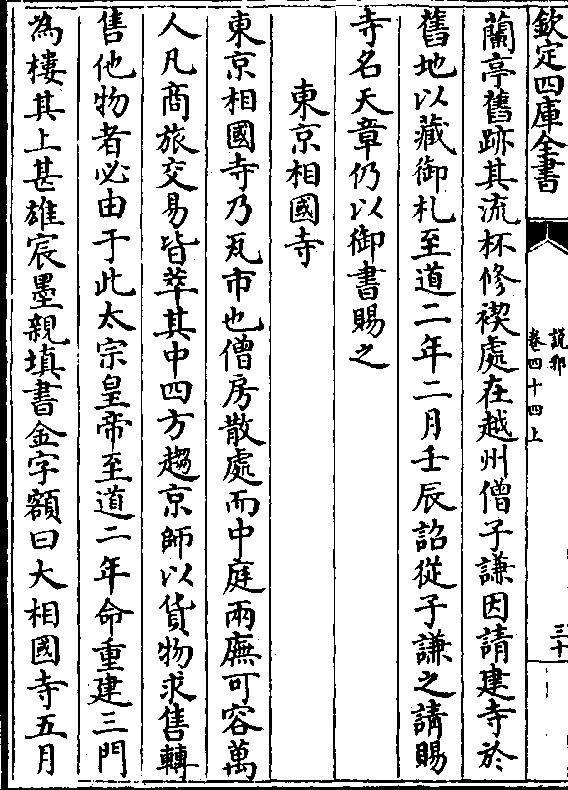 欽定四庫全書
說郛
卷四十四上
三十
蘭亭舊跡其流杯修禊處在越州僧子謙因請建寺於
舊地以藏御札至道二年二月壬辰詔從子謙之請賜
寺名天章仍以御書賜之
東京相國寺
東京相國寺乃瓦市也僧房散處而中庭兩廡可容萬
人凡商旅交易皆萃其中四方趨京師以貨物求售轉
售他物者必由于此太宗皇帝至道二年命重建三門
為樓其上甚雄宸墨親填書金字額曰大相國寺五月